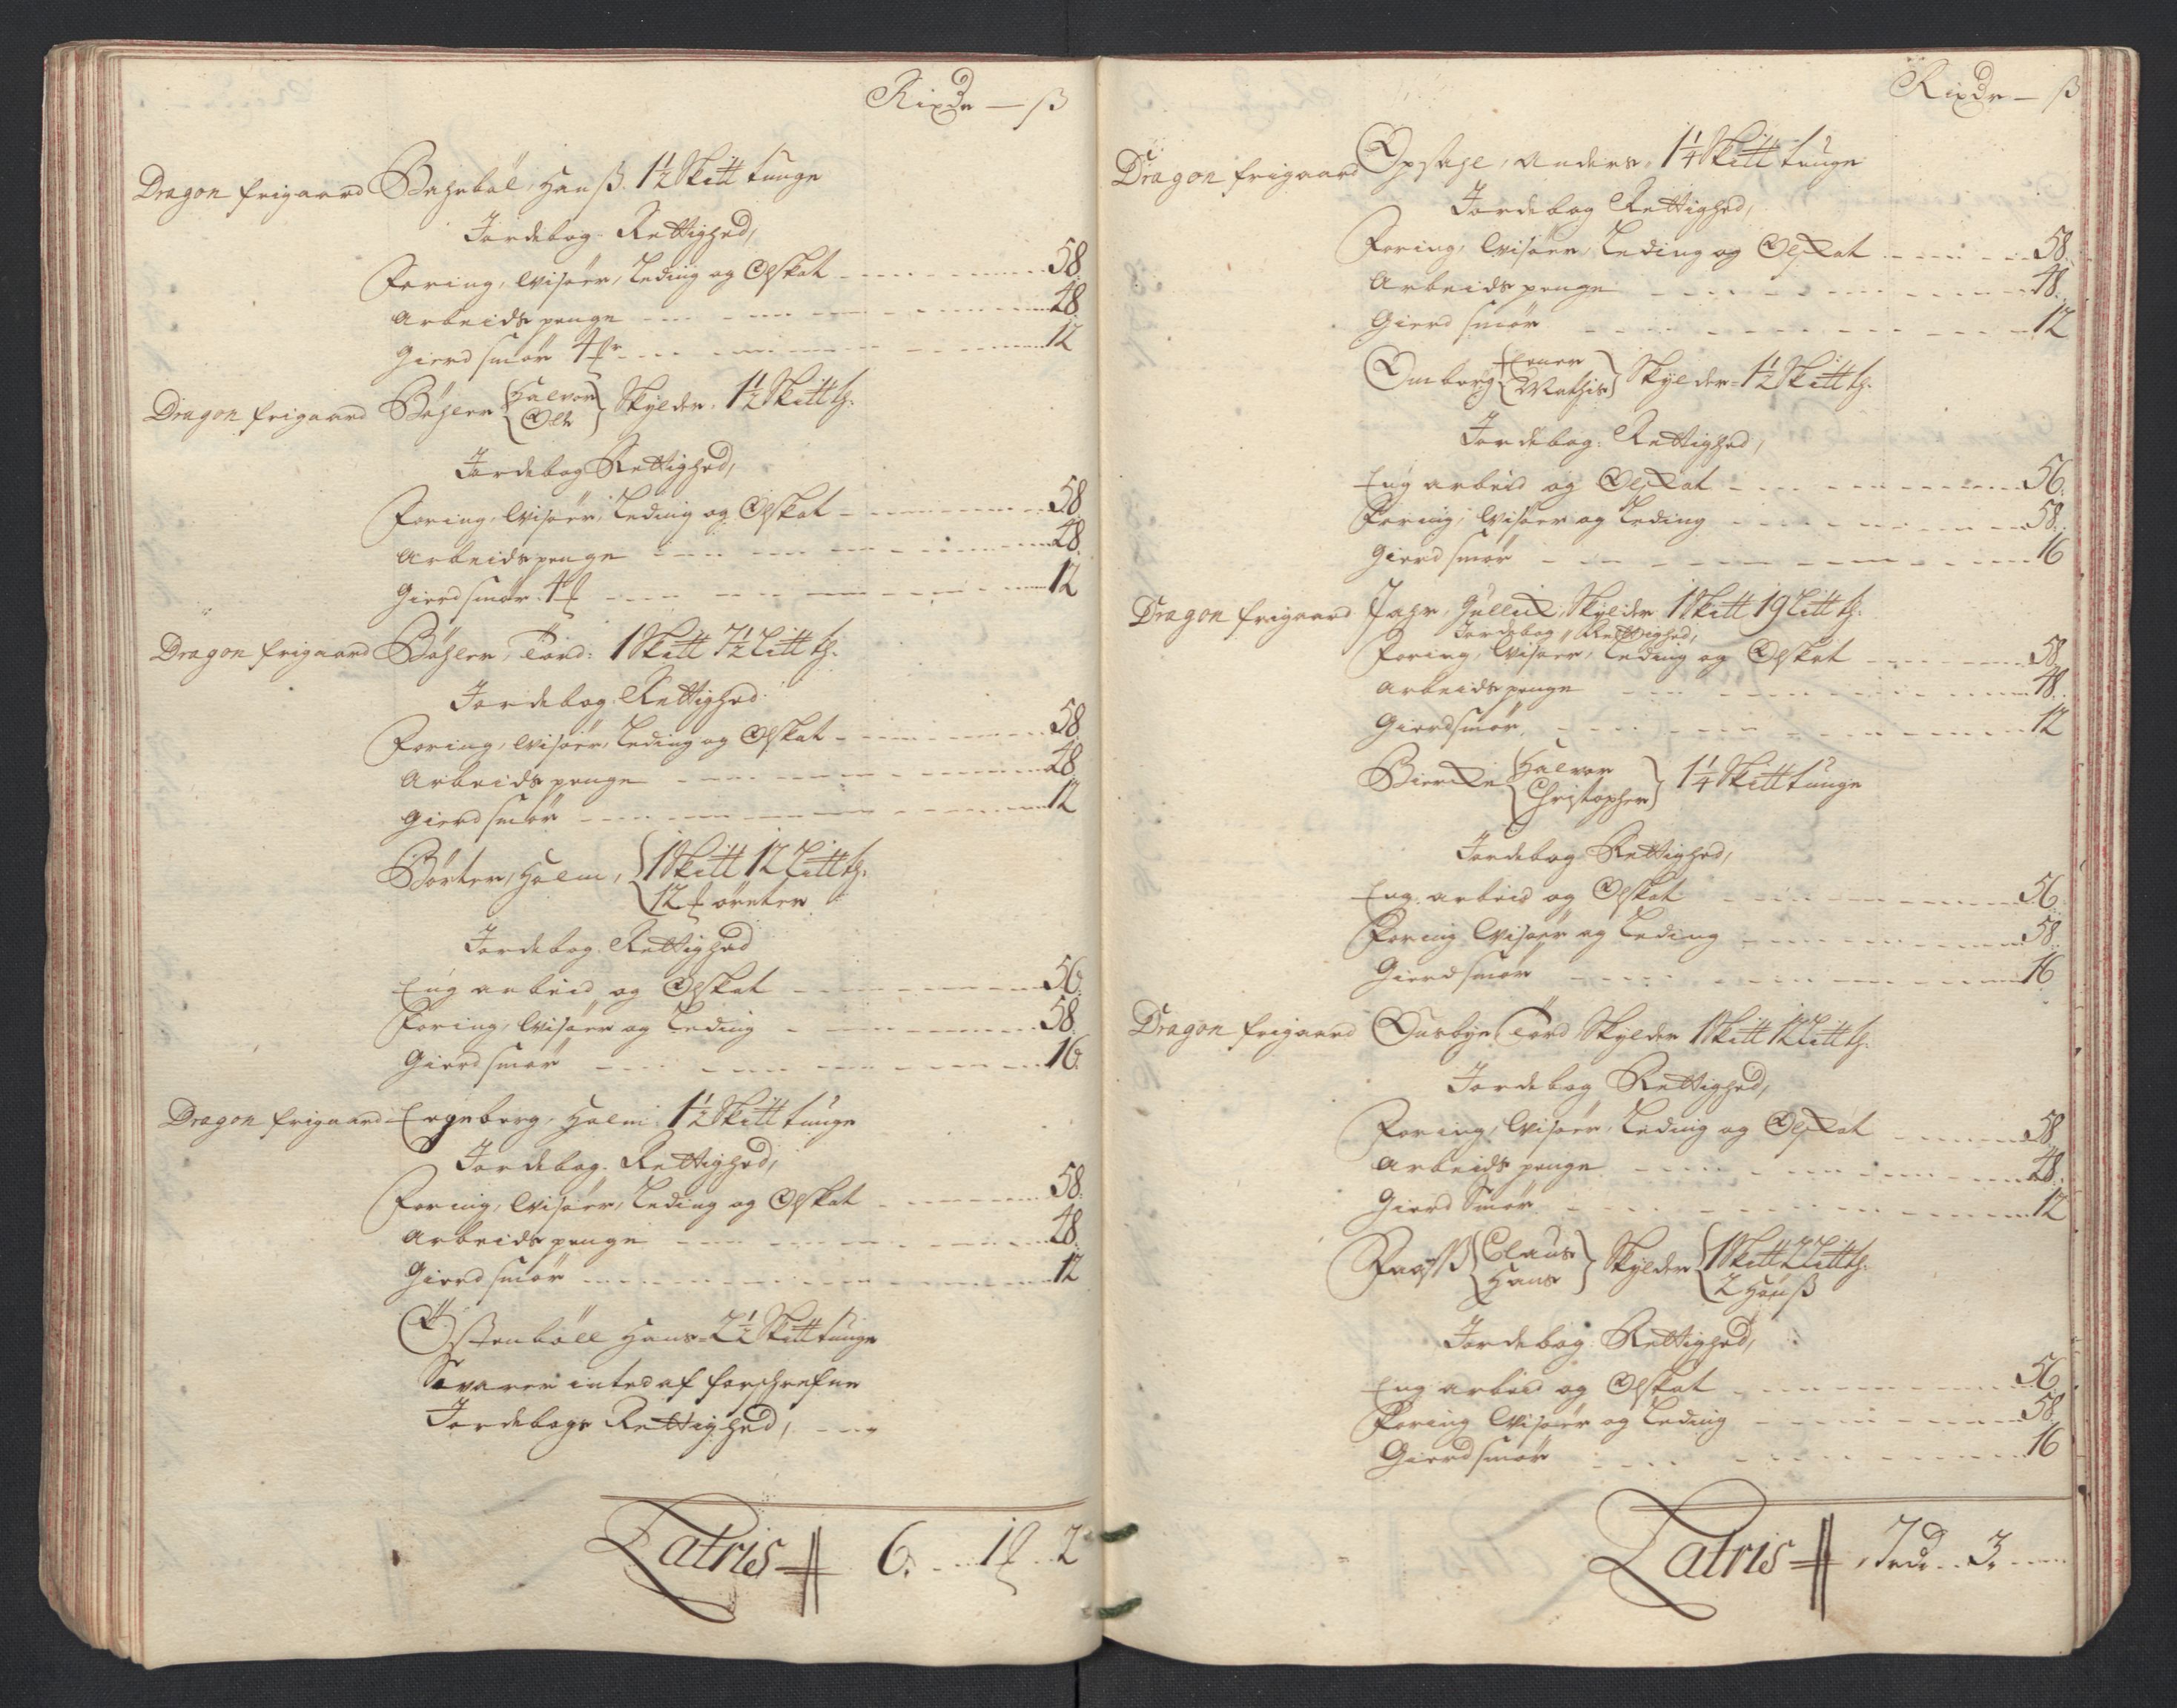 Rixdr — ß
Dragon frigaard Bahrbøl, Hanß. 1½ Skitt tunge
Jordebog Rettighed,
Foring, Wisøer, Leding og Olskat 58.
Arbeids penge 48.
Gierd smør 4 ℔r 12
Dragon frigaard Bøhler {Halvor Ole} Skylder 1½ Skitt tg.
Jordebog Rettighed,
Foring, Wisøer, Leding og Olskat 58.
Arbeidspenge 48.
Gierd smør 4 ℔ 12
Dragon frigaard Bøhler, Tord: 1 Skitt 7½ Litt tg.
Jordebog Rettighed
Foring, Wisøer, Leding og Olskat 58.
Arbeids penge 48
Gierd smør 12
Børter, Holm, {1 Skitt 12 Litt tg.
12 ℔ ørreter
Jordebog Rettighed
Eng arbeid og Olskat 56.
Foring, Wisøer og Leding 58.
Gierd smør 16.
Dragon frigaard Holm 1½ Skitt tunge
Jordebog Rettighed,
Foring, Wisøer, Leding og Olskat 58.
Arbeids penge 48.
Gierd smør 12
Østenbøll Hans 2½ Skitt tunge
Svarer inted af forschrefne
Jordebogs Rettighed,
Latris 6. 1 ℔ 2
Rixdr — ß
Dragon frigaard Opsahl, Anders, 1¼ Skitt tunge
Jordebog Rettighed,
Foring, Wisøer, Leding og Olskat 58.
Arbeids penge 48.
Gierd smør 12
Omborg {Mathis} Skylder 1½ Skitt tg.
Jordebog Rettighed,
Eng arbeid og Olskat 56.
Foring, Wisøer og Leding 58.
Gierd smør 16
Dragon frigaard Jahr, Gullich, Skylder 1 Skitt 19 Litt tg.
Jordebog Rettighed,
Foring, Wisøer, Leding og Olskat 58.
Arbeids penge 48.
Gierdsmør 12
Biercke {Halvor Christopher} 1¼ Skitt tunge
Jordebog Rettighed,
Eng arbeid og Olskat 56.
Foring Wisøer og Leding 58.
Gierdsmør 16
Dragon frigaard Ousbye Tord Skylder 1 Skitt 12 Litt tg.
Jordebog Rettighed,
Foring, Wisøer, Leding og Olskat 58.
Arbeids penge 48.
Gierd Smør 12
{Claus Hans} Skylder {1 Skitt 2 Litt tg.
2 Hanß
Jordebog Rettighed,
Eng arbeid og Olskat 56.
Foring Wisøer og Leding 58.
Gierd smør 16
Latris 7 rd 3.